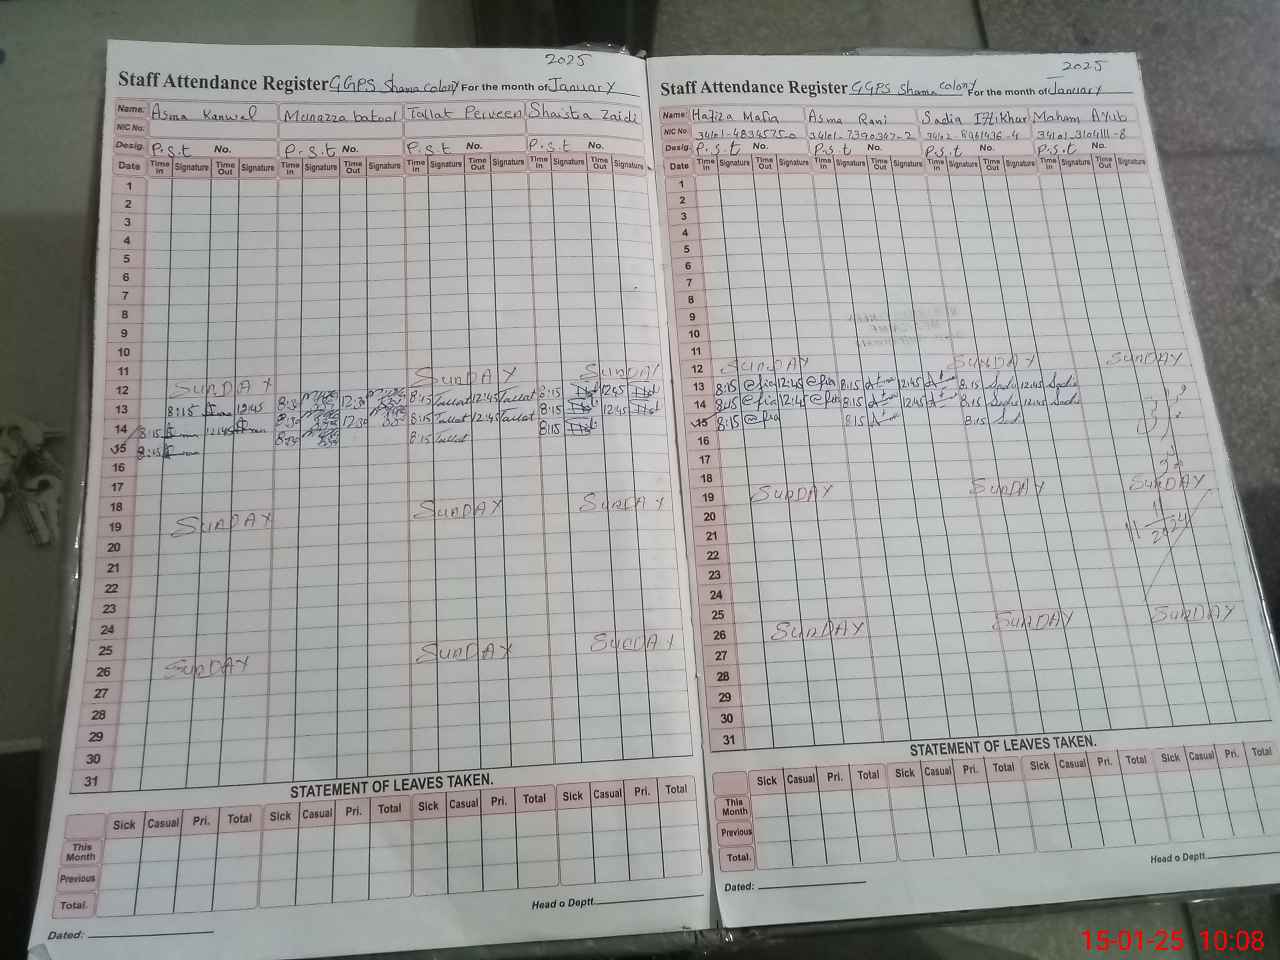 2025
Staff Attendance Register GGPS Shama Colony For the month of January
Name: Asma Kanwal Munazza batool Tallat Perveen Shaista Zaidi
NIC No.
Desig. P.s.t No. P.s.t No. P.s.t No. P.s.t No.
Date Time In Signature Time Out Signature Time In Signature Time Out Signature Time In Signature Time Out Signature Time In Signature Time Out Signature
1
2
3
4
5
6
7
8
9
10
11
12 SunDAY SunDAY SunDAY
13 8:15 12:45 8:30 12:30 8:15 Tallat 12:45 Tallat 8:15 12:45
14 8:15 12:45 8:30 12:30 8:15 Tallat 12:45 Tallat 8:15 12:45
15 8:15 8:30 8:15 Tallat 8:15
16
17
18
19 SunDAY SunDAY SunDAY
20
21
22
23
24
25
26 SunDAY SunDAY SunDAY
27
28
29
30
31
STATEMENT OF LEAVES TAKEN.
Sick Casual Pri. Total Sick Casual Pri. Total Sick Casual Pri. Total Sick Casual Pri. Total
This Month
Previous
Total.
Head o Deptt.
Dated:
2025
Staff Attendance Register GGPS Shama Colony For the month of January
Name: Hafiza Mafia Asma Rani Sadia Iftikhar Maham Ayub
NIC No. 34101-4834575-0
Desig. P.s.t No. P.s.t No. P.s.t No. P.s.t No.
Date Time In Signature Time Out Signature Time In Signature Time Out Signature Time In Signature Time Out Signature Time In Signature Time Out Signature
1
2
3
4
5
6
7
8
9
10
11
12 SunDAY SunDAY SunDAY
13 8:15 12:45 8:15 12:45 8:15 Sadia 12:45 Sadia
14 8:15 12:45 8:15 12:45 8:15 Sadia 12:45 Sadia
15 8:15 8:15 8:15
16
17
18
19 SunDAY SunDAY SunDAY
20
21
22
23
24
25
26 SunDAY SunDAY SunDAY
27
28
29
30
31
STATEMENT OF LEAVES TAKEN.
Sick Casual Pri. Total Sick Casual Pri. Total Sick Casual Pri. Total Sick Casual Pri. Total
This Month
Previous
Total.
Head o Deptt.
Dated:
15-01-25 10:08